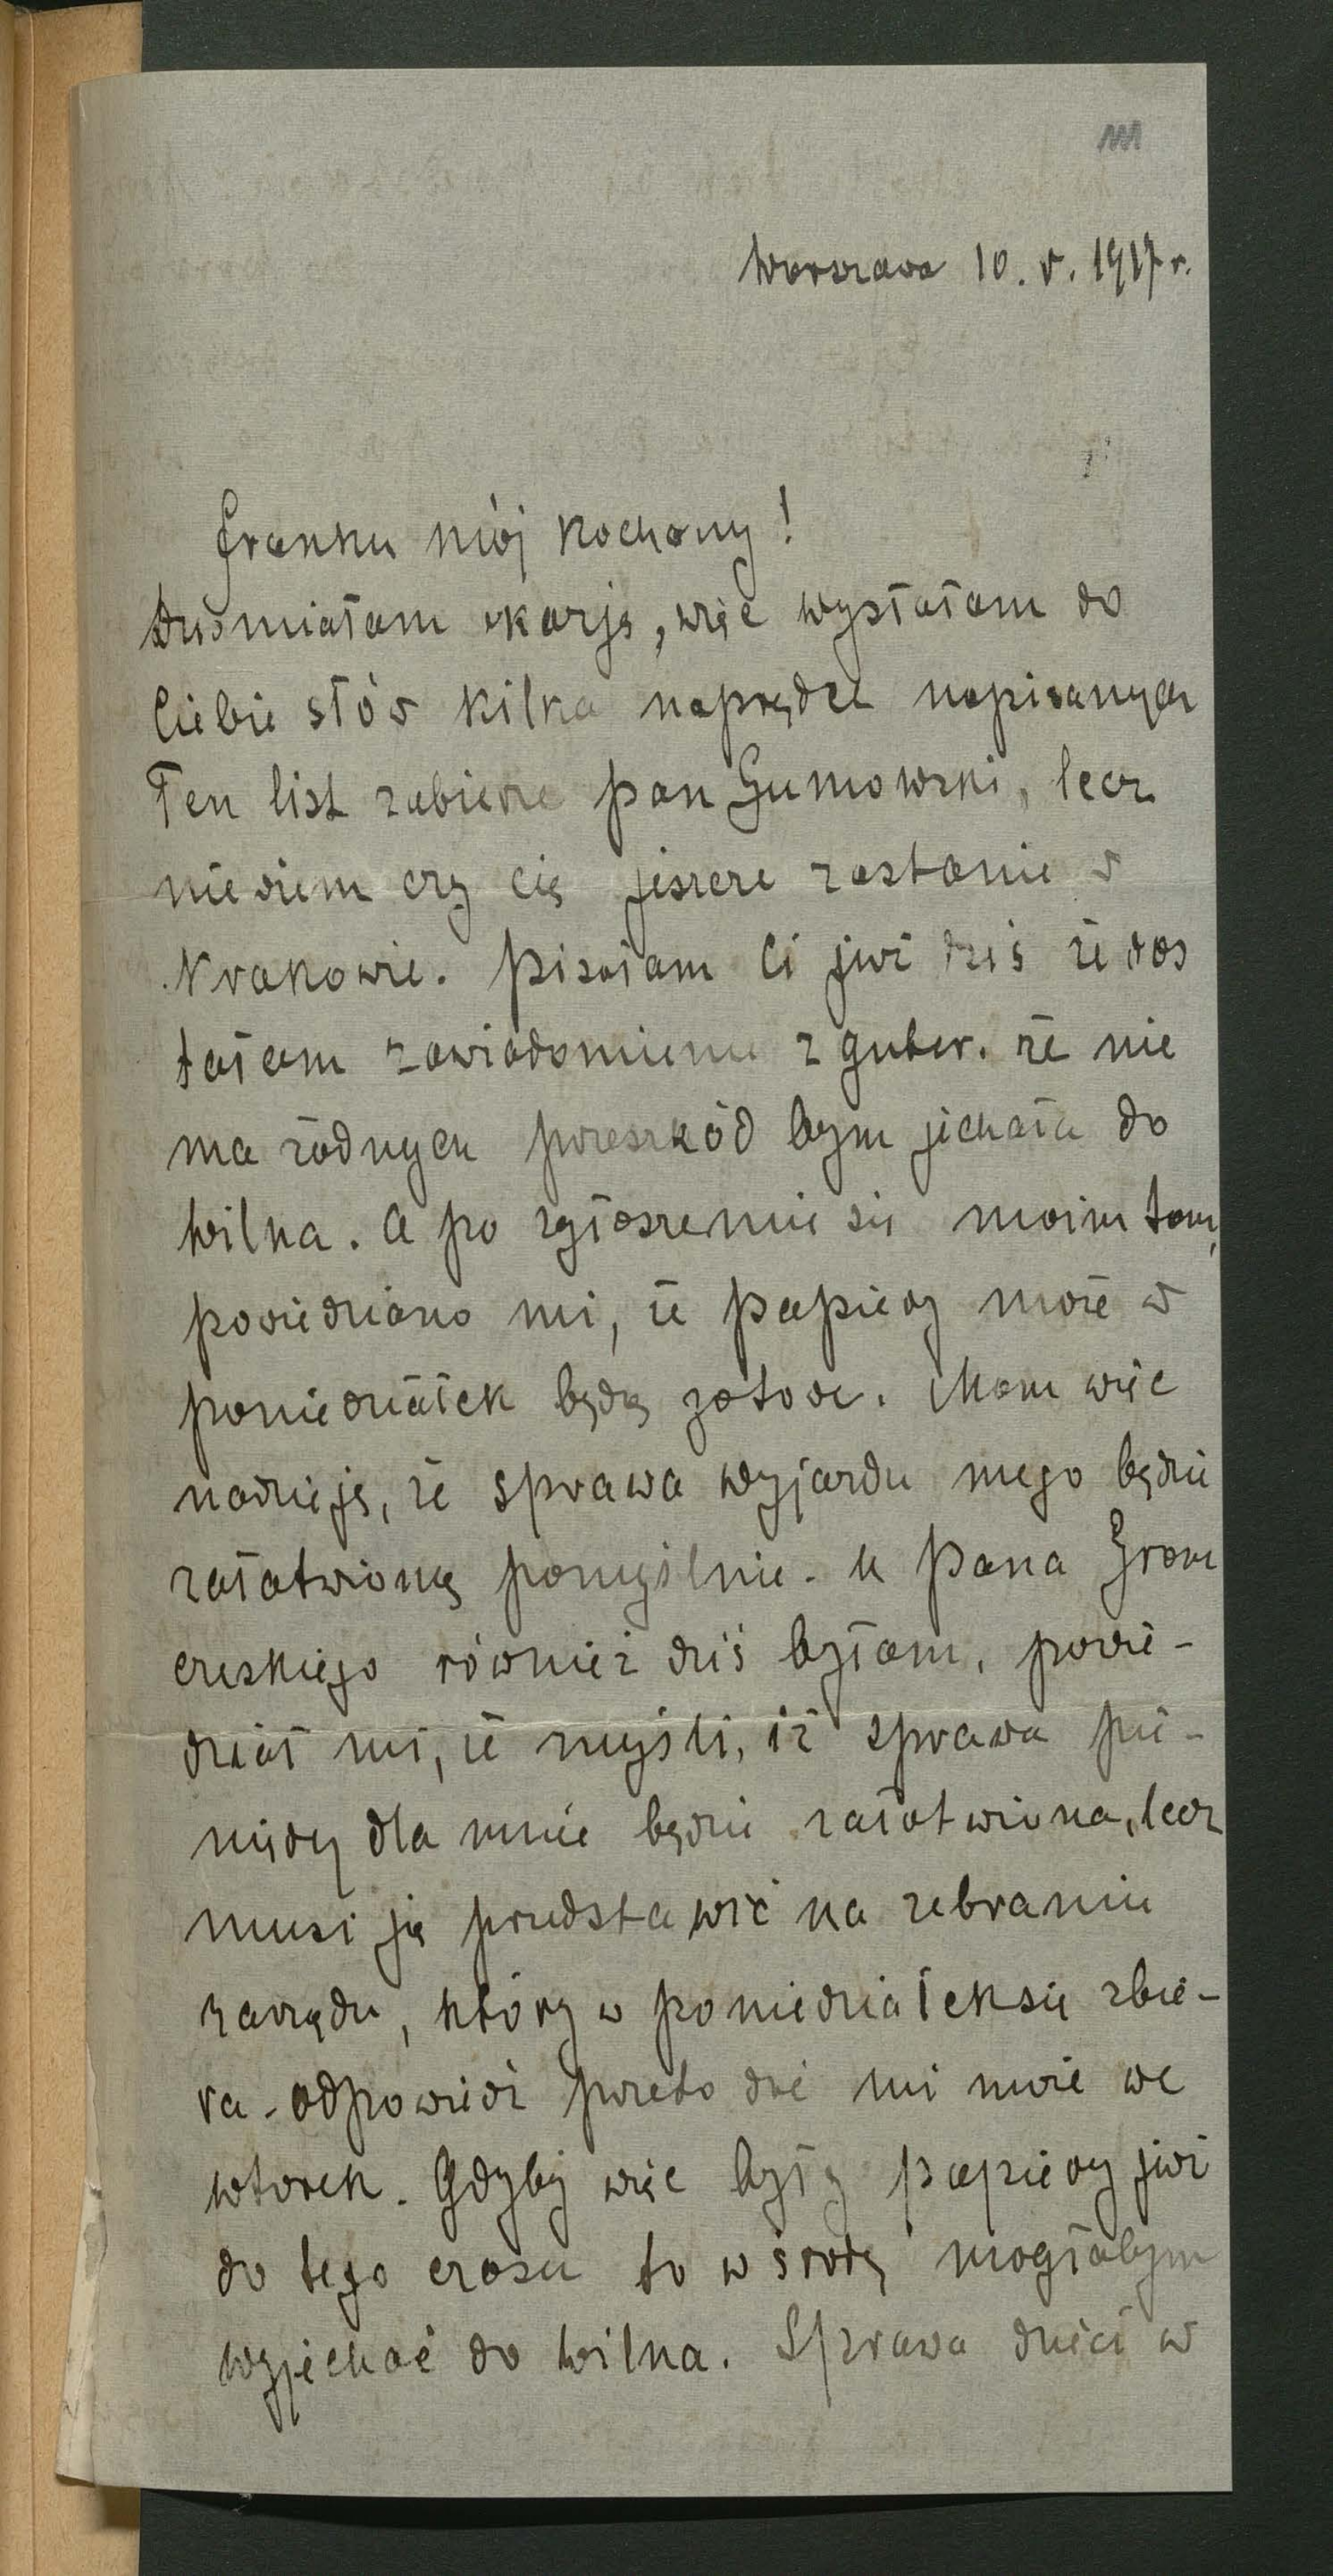 Warszawa 10. V. 1917 r.
Franku mój kochany!
Dziś miałam okazję, więc wysłałam do
Ciebie słów kilka naprędce napisanych
Ten list zabierze pan Gumowski, lecz
nie wiem czy cię jeszcze zastanie w
Krakowie. Pisałam Ci już dziś że dos
tałam zawiadomienie z guber. że nie
ma żadnych przeszkód bym jechała do
Wilna. A po zgłoszeniu się moim tam,
powiedziano mi, że papiery może w
poniedziałek będą gotowe. Mam więc
nadzieję, że sprawa wyjazdu mego będzie
załatwioną pomyślnie. U Pana Grom
czeskiego również dziś byłam, powie-
dział mi, że myśli, iż sprawa pie-
niędzy dla mnie będzie załatwiona, lecz
musi ją przedstawić na zebraniu
zarządu, który w poniedziałek się zbie-
ra. Odpowiedź przeto dać mi może we
wtorek. Gdyby więc były papiery już
do tego czasu to w środę mogłabym
wyjechać do Wilna. Sprawa dzieci w